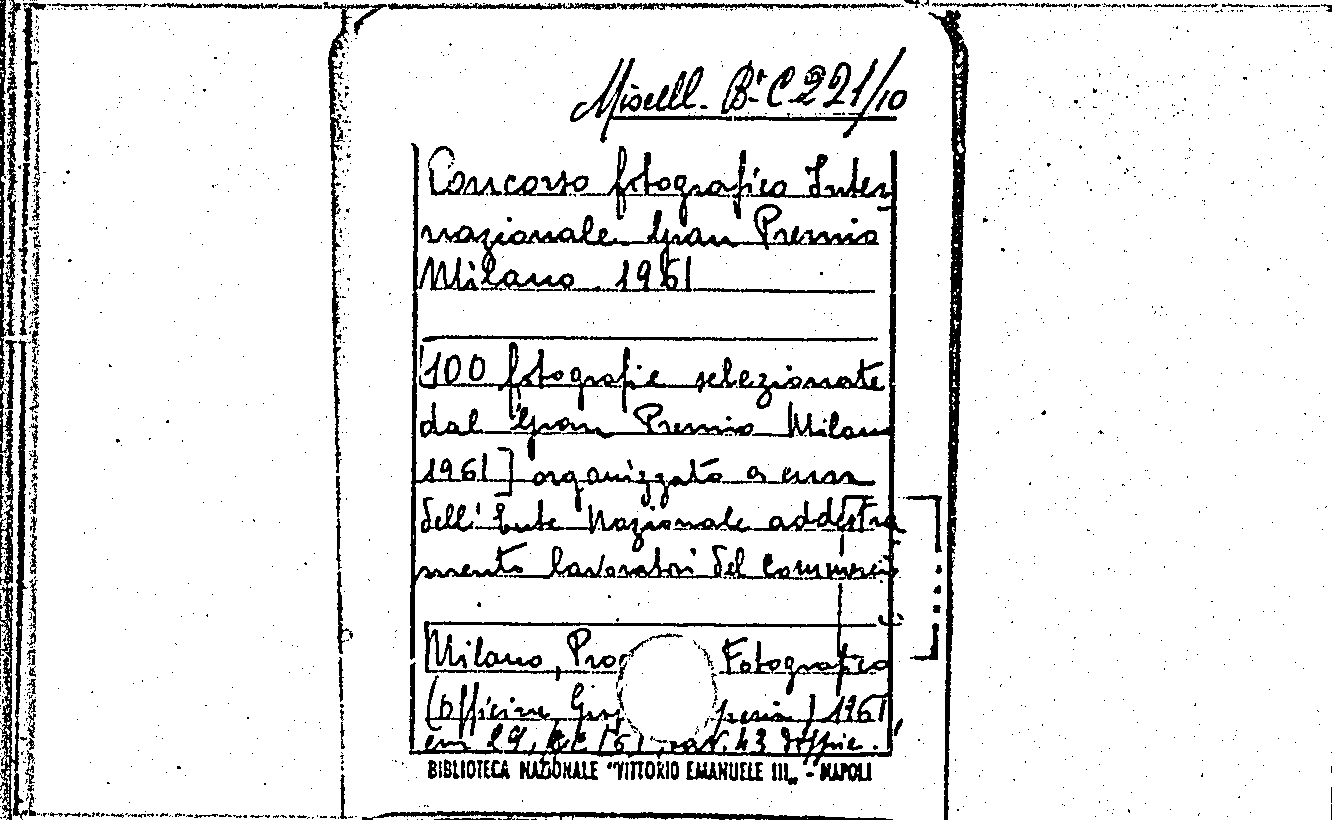 Miscell. Bª C 221/10
Concorso fotografico Inter
nazionale Gran Premio
Milano 1961
[100 fotografie selezionate
dal Gran Premio Milano
1961] organizzato a cura
dell'Ente Nazionale addestra
mento lavoratori del commercio
Milano, Fotografico
(officine 1961,
cm 29,
BIBLIOTECA NAZIONALE "VITTORIO EMANUELE III„ - NAPOLI